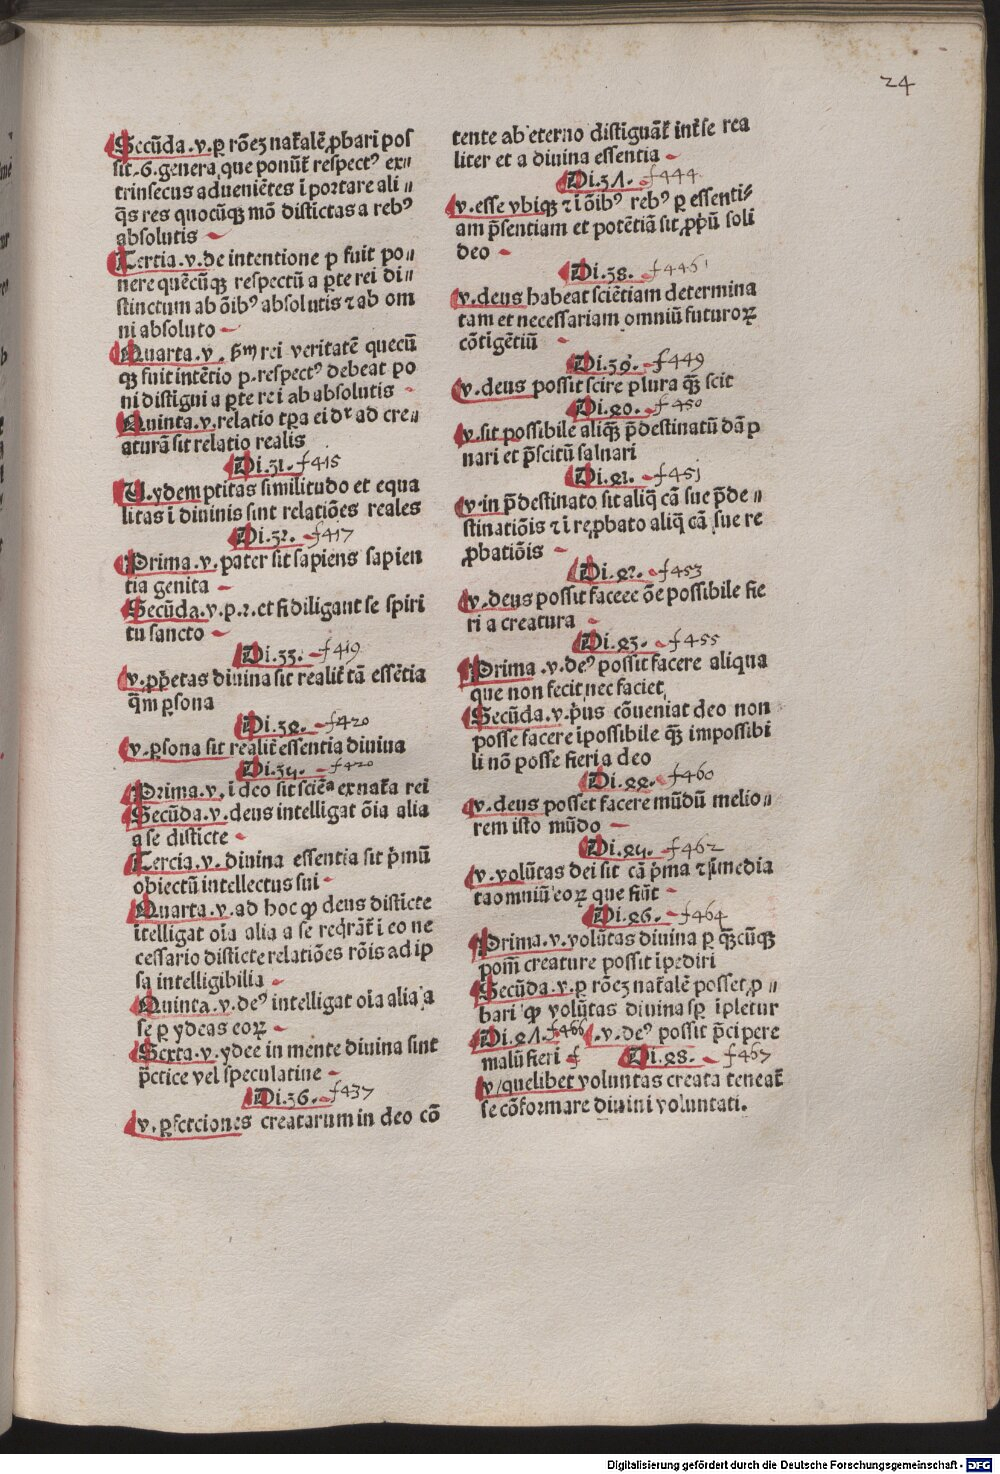 24
Secūda .v. ꝑ rōeꝫ nat̄alē ꝓbari pos
sit .6. genera que ponūt̄ respectꝰ ex〃
trinsecus aduēniētes īportare ali〃
q̄s res quocūqꝫ mō distictas a rebꝰ
absolutis
Tertia .v. de intentione p̄ fuit po〃
nere quēcūqꝫ respectū a ꝑte rei di〃
stinctum ab ōibꝰ absolutis ⁊ ab om
ni absoluto
Quarta .v. ẜm rei veritatē quecū
qꝫ fuit intētio p. respectꝰ debeat po
ni distigui a ꝑte rei ab absolutis
Quinta .v. relatio tꝑa ei dr̄ ad cre〃
aturā sit relatio realis
Di.31. f415
U. ydemptitas similitudo et equa
litas ī diuinis sint relatiōes reales
Di.32. f417
Prima .v. pater sit sapiens sapien
tia genita
Secūda .v. p.⁊.et fi diligant se spiri
tu sancto
Di.33. f419
v. ꝓp̄etas diuina sit realit̄ tā essētia
q̄m ꝑsona
Di.34. f420
v. ꝑsona sit realit̄ essentia diuina
Di.35. f420
Prima .v. ī deo sit sciēa ex nat̄a rei
Secūda .v. deus intelligat ōia alia
a se disticte
Tercia .v. diuina essentia sit p̄mū
obiectū intellectus sui
Quarta .v. ad hoc ꝙ deus disticte
ītelligat oīa alia a se reqrāt̄ ī eo ne
cessario disticte relatiōes rōis ad ip
sa intelligibilia
Quinta .v. deꝰ intelligat oīa alia a
se ꝑ ydeas eoꝝ
Sexta .v. ydee in mente diuina sint
p̄ctice vel speculatiue
Di.36. f437
v. ꝑfectiones creatarum in deo cō
tente ab eterno distiguāt̄ int̄ se rea
liter et a diuina essentia
Di.37. f444
v. esse vbiqꝫ ⁊ ī ōibꝰ rebꝰ ꝑ essenti〃
am p̄sentiam et potētiā sit ꝓp̄ū soli
deo
Di.38. f446
v. deus habeat sciētiam determina
tam et necessariam omniū futuroꝝ
cōtigētiū
Di.39. f449
v. deus possit scire plura qꝫ scit
Di.40. f450
v. sit possibile aliqꝫ p̄destinatū dāp
nari et p̄scitū saluari
Di.41. f451
v. in p̄destinato sit aliq̄ cā sue p̄de〃
stinatiōis ⁊ ī reꝓbato aliq̄ cā sue re
ꝓbatiōis
Di.42. f453
v. deus possit faceee ōe possibile fie
ri a creatura
Di.43. f455
Prima .v. deꝰ possit facere aliqua
que non fecit nec faciet
Secūda .v. p̄us cōueniat deo non
posse facere īpossibile qꝫ impossibi
li nō posse fieri a deo
Di.44. f460
v. deus posset facere mūdū melio〃
rem isto mūdo
Di.45. f462
v. volūtas dei sit cā p̄ma ⁊ īmedia
ta omniū eoꝝ que fiūt
Di.46. f464
Prima .v. volūtas diuina ꝑ qꝫcūqꝫ
potn̄ creature possit īpediri
Secūda .v. ꝑ rōeꝫ nat̄alē posset ꝓ〃
bari ꝙ volūtas diuina sꝑ īpletur
Di.47. f466 .v. deꝰ possit p̄cipere
malū fieri Di.48. f467
v. quelibet voluntas creata teneat̄
se cōformare diuini voluntati.
Digitalisierung gefördert durch die Deutsche Forschungsgemeinschaft - DFG